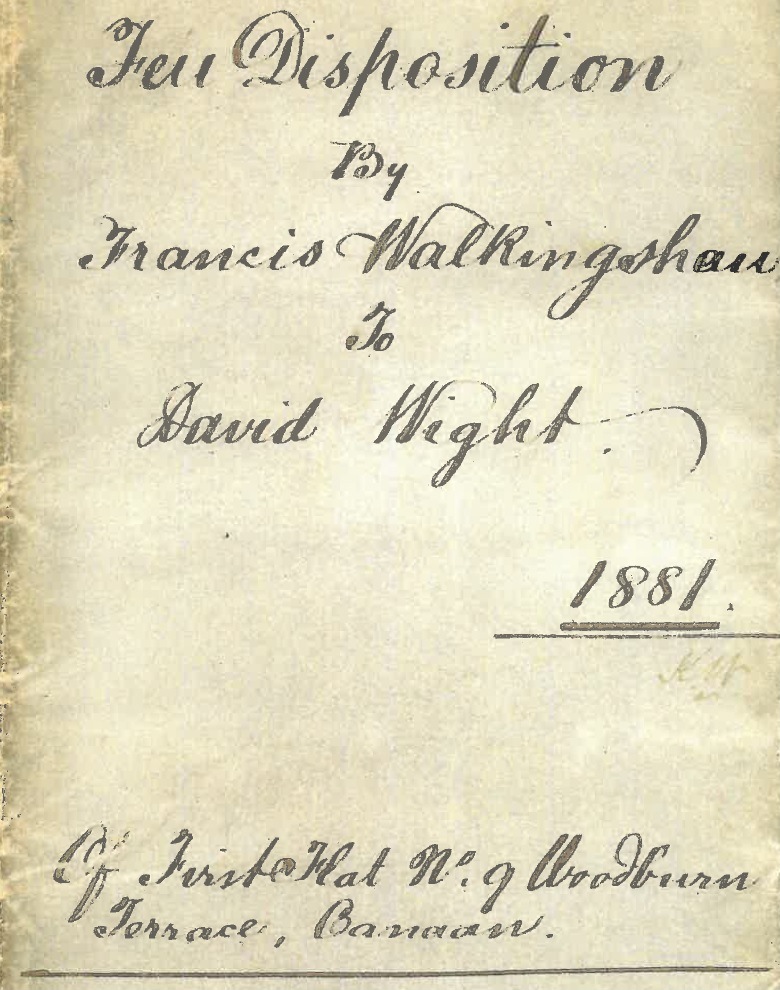 Feu Disposition
By
Francis Walkingshaw
To
David Wight.
1881.
Of First Flat Nº. 9 Woodburn
Terrace, Canaan.